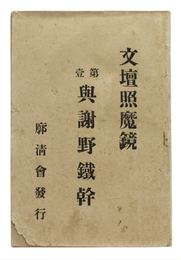 文壇照魔鏡
第壹
與謝野鐵幹
廓清會發行